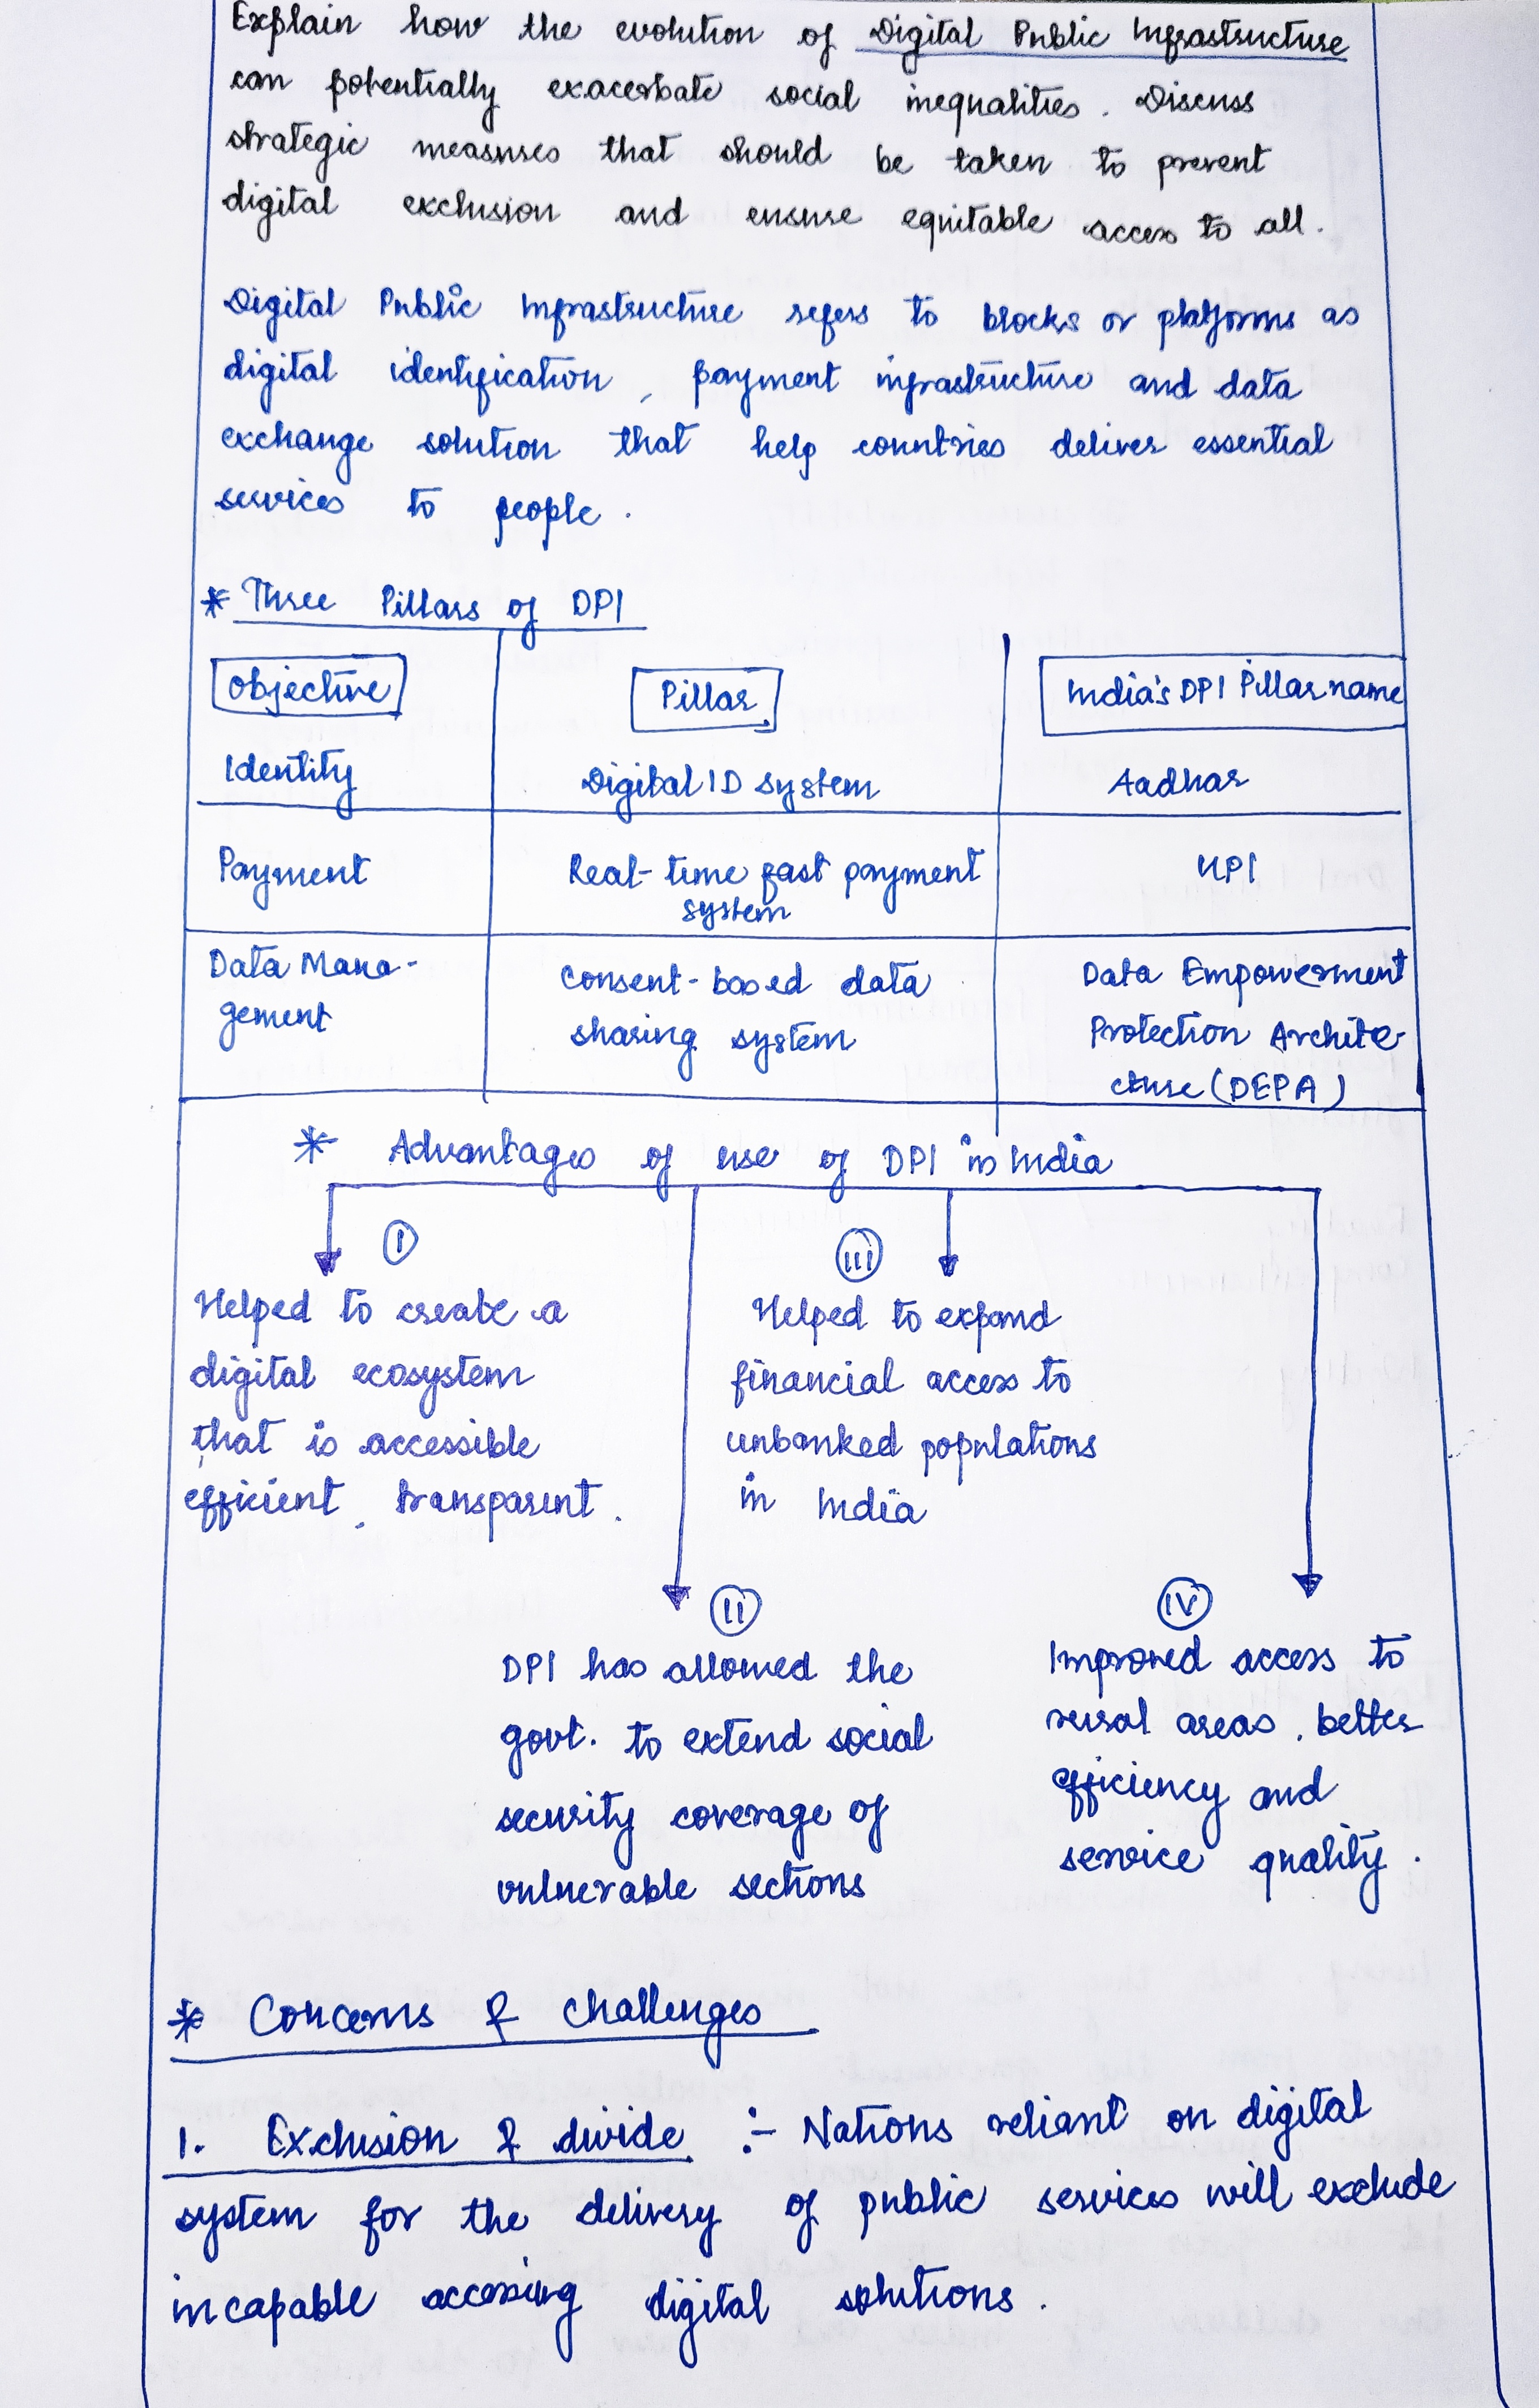 Explain how the evolution of Digital Public Infrastructure
can potentially exacerbate social inequalities. Discuss
strategic measures that should be taken to prevent
digital exclusion and ensure equitable access to all.
Digital Public Infrastructure refers to blocks or platforms as
digital identification, payment infrastructure and data
exchange solution that help countries deliver essential
services to people.
* Three Pillars of DPI
Objective Pillar India's DPI Pillar name
Identity Digital ID system Aadhar
Payment Real-time fast payment UPI
system
Data Mana- Consent-based data Data Empowerment
gement sharing system Protection Archite-
cture (DEPA)
* Advantages of use of DPI in India
I
Helped to create a
digital ecosystem
that is accessible
efficient, transparent.
III
Helped to expand
financial access to
unbanked populations
in India
II
DPI has allowed the
govt. to extend social
security coverage of
vulnerable sections
IV
Improved access to
rural areas, better
efficiency and
service quality.
* Concerns & challenges
1. Exclusion & divide :- Nations reliant on digital
system for the delivery of public services will exclude
incapable accessing digital solutions.